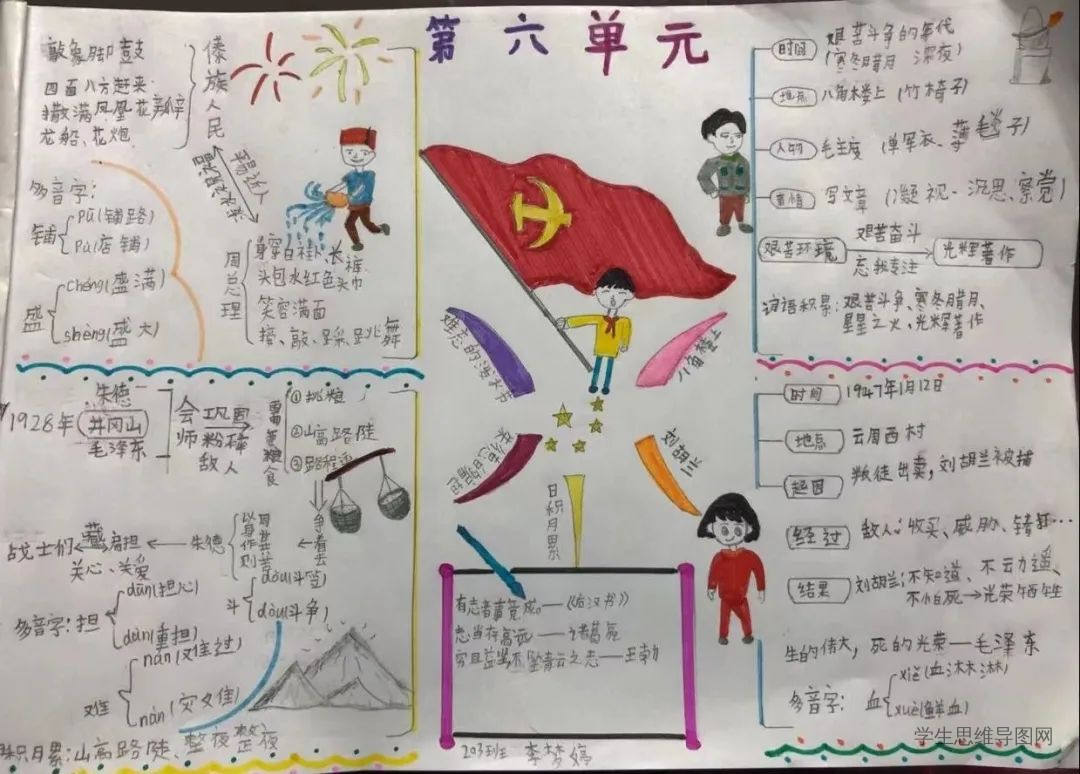 第六单元
敲象脚鼓
四面八方赶来
撒满凤凰花瓣
龙船、花炮
傣族人民
多音字:
铺
pū(铺路)
盛
chéng(盛满)
shèng(盛大)
周总理
身穿白褂、长裤
头包水红色头巾
笑容满面
接、敲、踩、跳舞
时间
艰苦斗争的年代
(寒冬腊月 深夜)
地点
八角楼上(竹椅子)
人物
毛主席(单军衣、薄毛毯子)
事情
写文章(凝视、沉思、察觉)
艰苦环境
艰苦奋斗
忘我专注
光辉著作
词语积累:艰苦斗争、寒冬腊月、
星星之火、光辉著作
难忘的泼水节
八角楼上
朱德的扁担
刘胡兰
日积月累
1928年
朱德
井冈山
毛泽东
会师
巩固
粉碎
敌人
需要粮食
①挑粮
②山高路陡
③路程
争着去
朱德
战士们
藏扁担
关心、关爱
多音字:
担
dān(担心)
dàn(重担)
斗
dǒu(斗笠)
dòu(斗争)
难
nán(难过)
nàn(灾难)
积月累:山高路陡、整夜整夜
有志者事竟成。—《后汉书》
志当存高远——诸葛亮
穷且益坚,不坠青云之志—王勃
203班 李梦婷
时间
1947年1月12日
地点
云周西村
起因
叛徒出卖,刘胡兰被捕
经过
敌人:收买、威胁、
结果
刘胡兰:不知道、不动遥、
不怕死→光荣牺牲
生的伟大,死的光荣—毛泽东
多音字:
血
xiě(血淋淋)
xuè(鲜血)
学生思维导图网